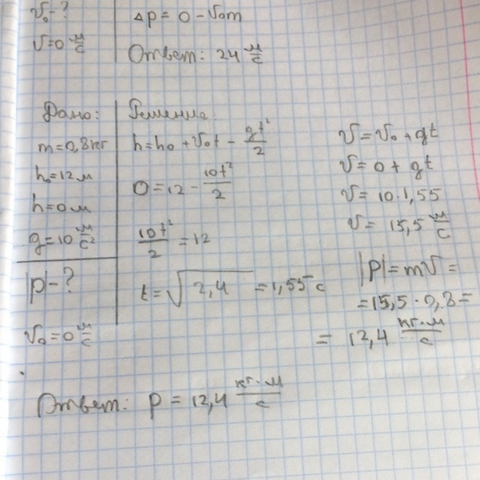 v₀ - ?
v = 0 м/с
Δp = 0 - v₀m
Ответ: 24 м/с
Дано:
m = 0,8 кг
h₀ = 12 м
h = 0 м
g = 10 м/с²
|p| - ?
v₀ = 0 м/с
Решение:
h = h₀ + v₀t - gt²/2
0 = 12 - 10t²/2
10t²/2 = 12
t = √2,4 = 1,55 с
v = v₀ + gt
v = 0 + gt
v = 10·1,55
v = 15,5 м/с
|p| = mv =
= 15,5·0,8 =
= 12,4 кг·м/с
Ответ: p = 12,4 кг·м/с